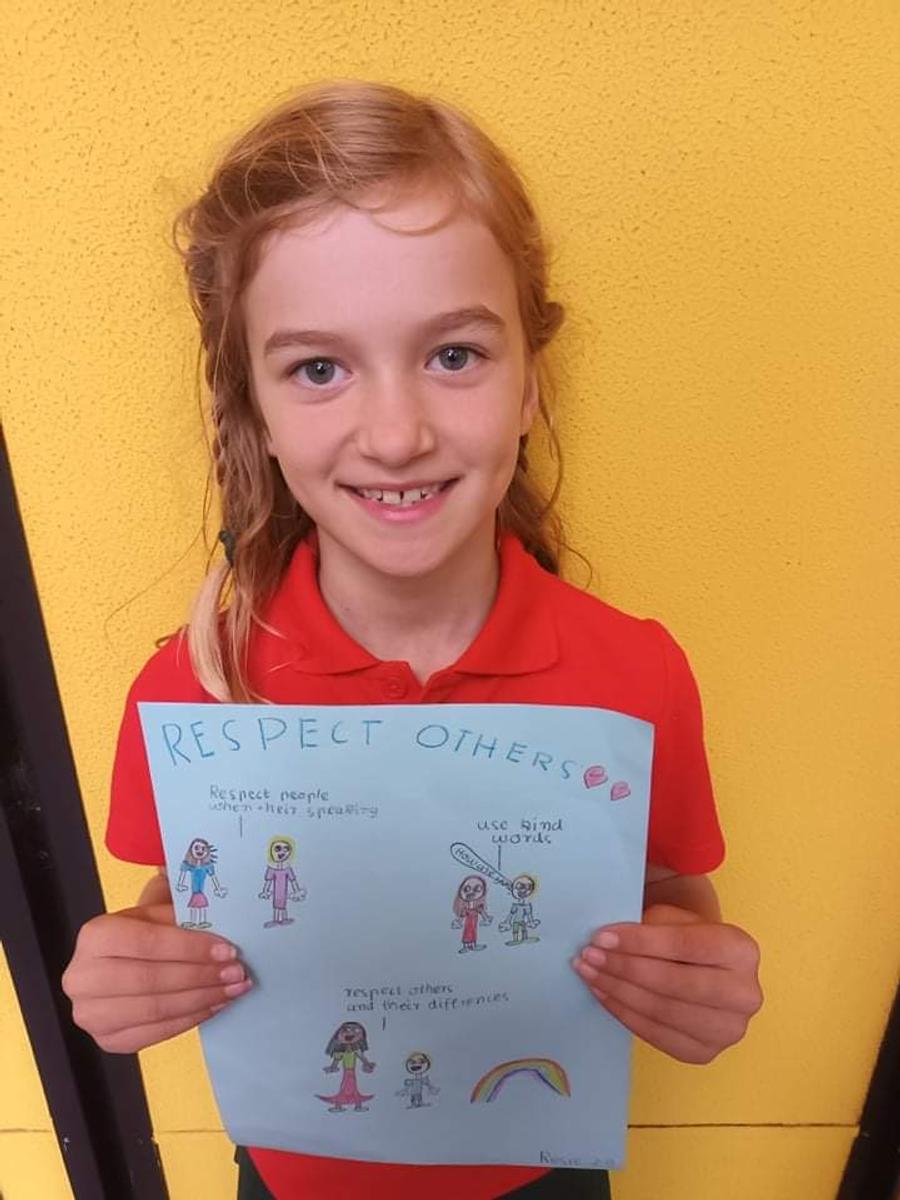 RESPECT OTHERS
Respect people
when their speaking
use kind
words
How are you
respect others
and their differences
Rosie